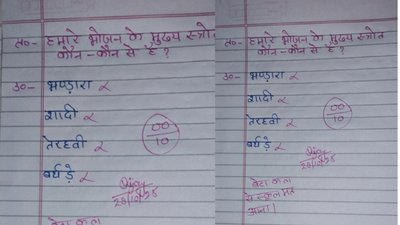 प्र०- हमारे भोजन के मुख्य स्त्रोत
कौन-कौन से हैं ?
उ०- भण्डारा
शादी
तेरहवी
बर्थ डे
00
10
बेटा कल
प्र०- हमारे भोजन के मुख्य स्त्रोत
कौन-कौन से है ?
उ०- भण्डारा
शादी
तेरहवी
बर्थ डे
00
10
बेटा कल
से स्कूल मत
आना।